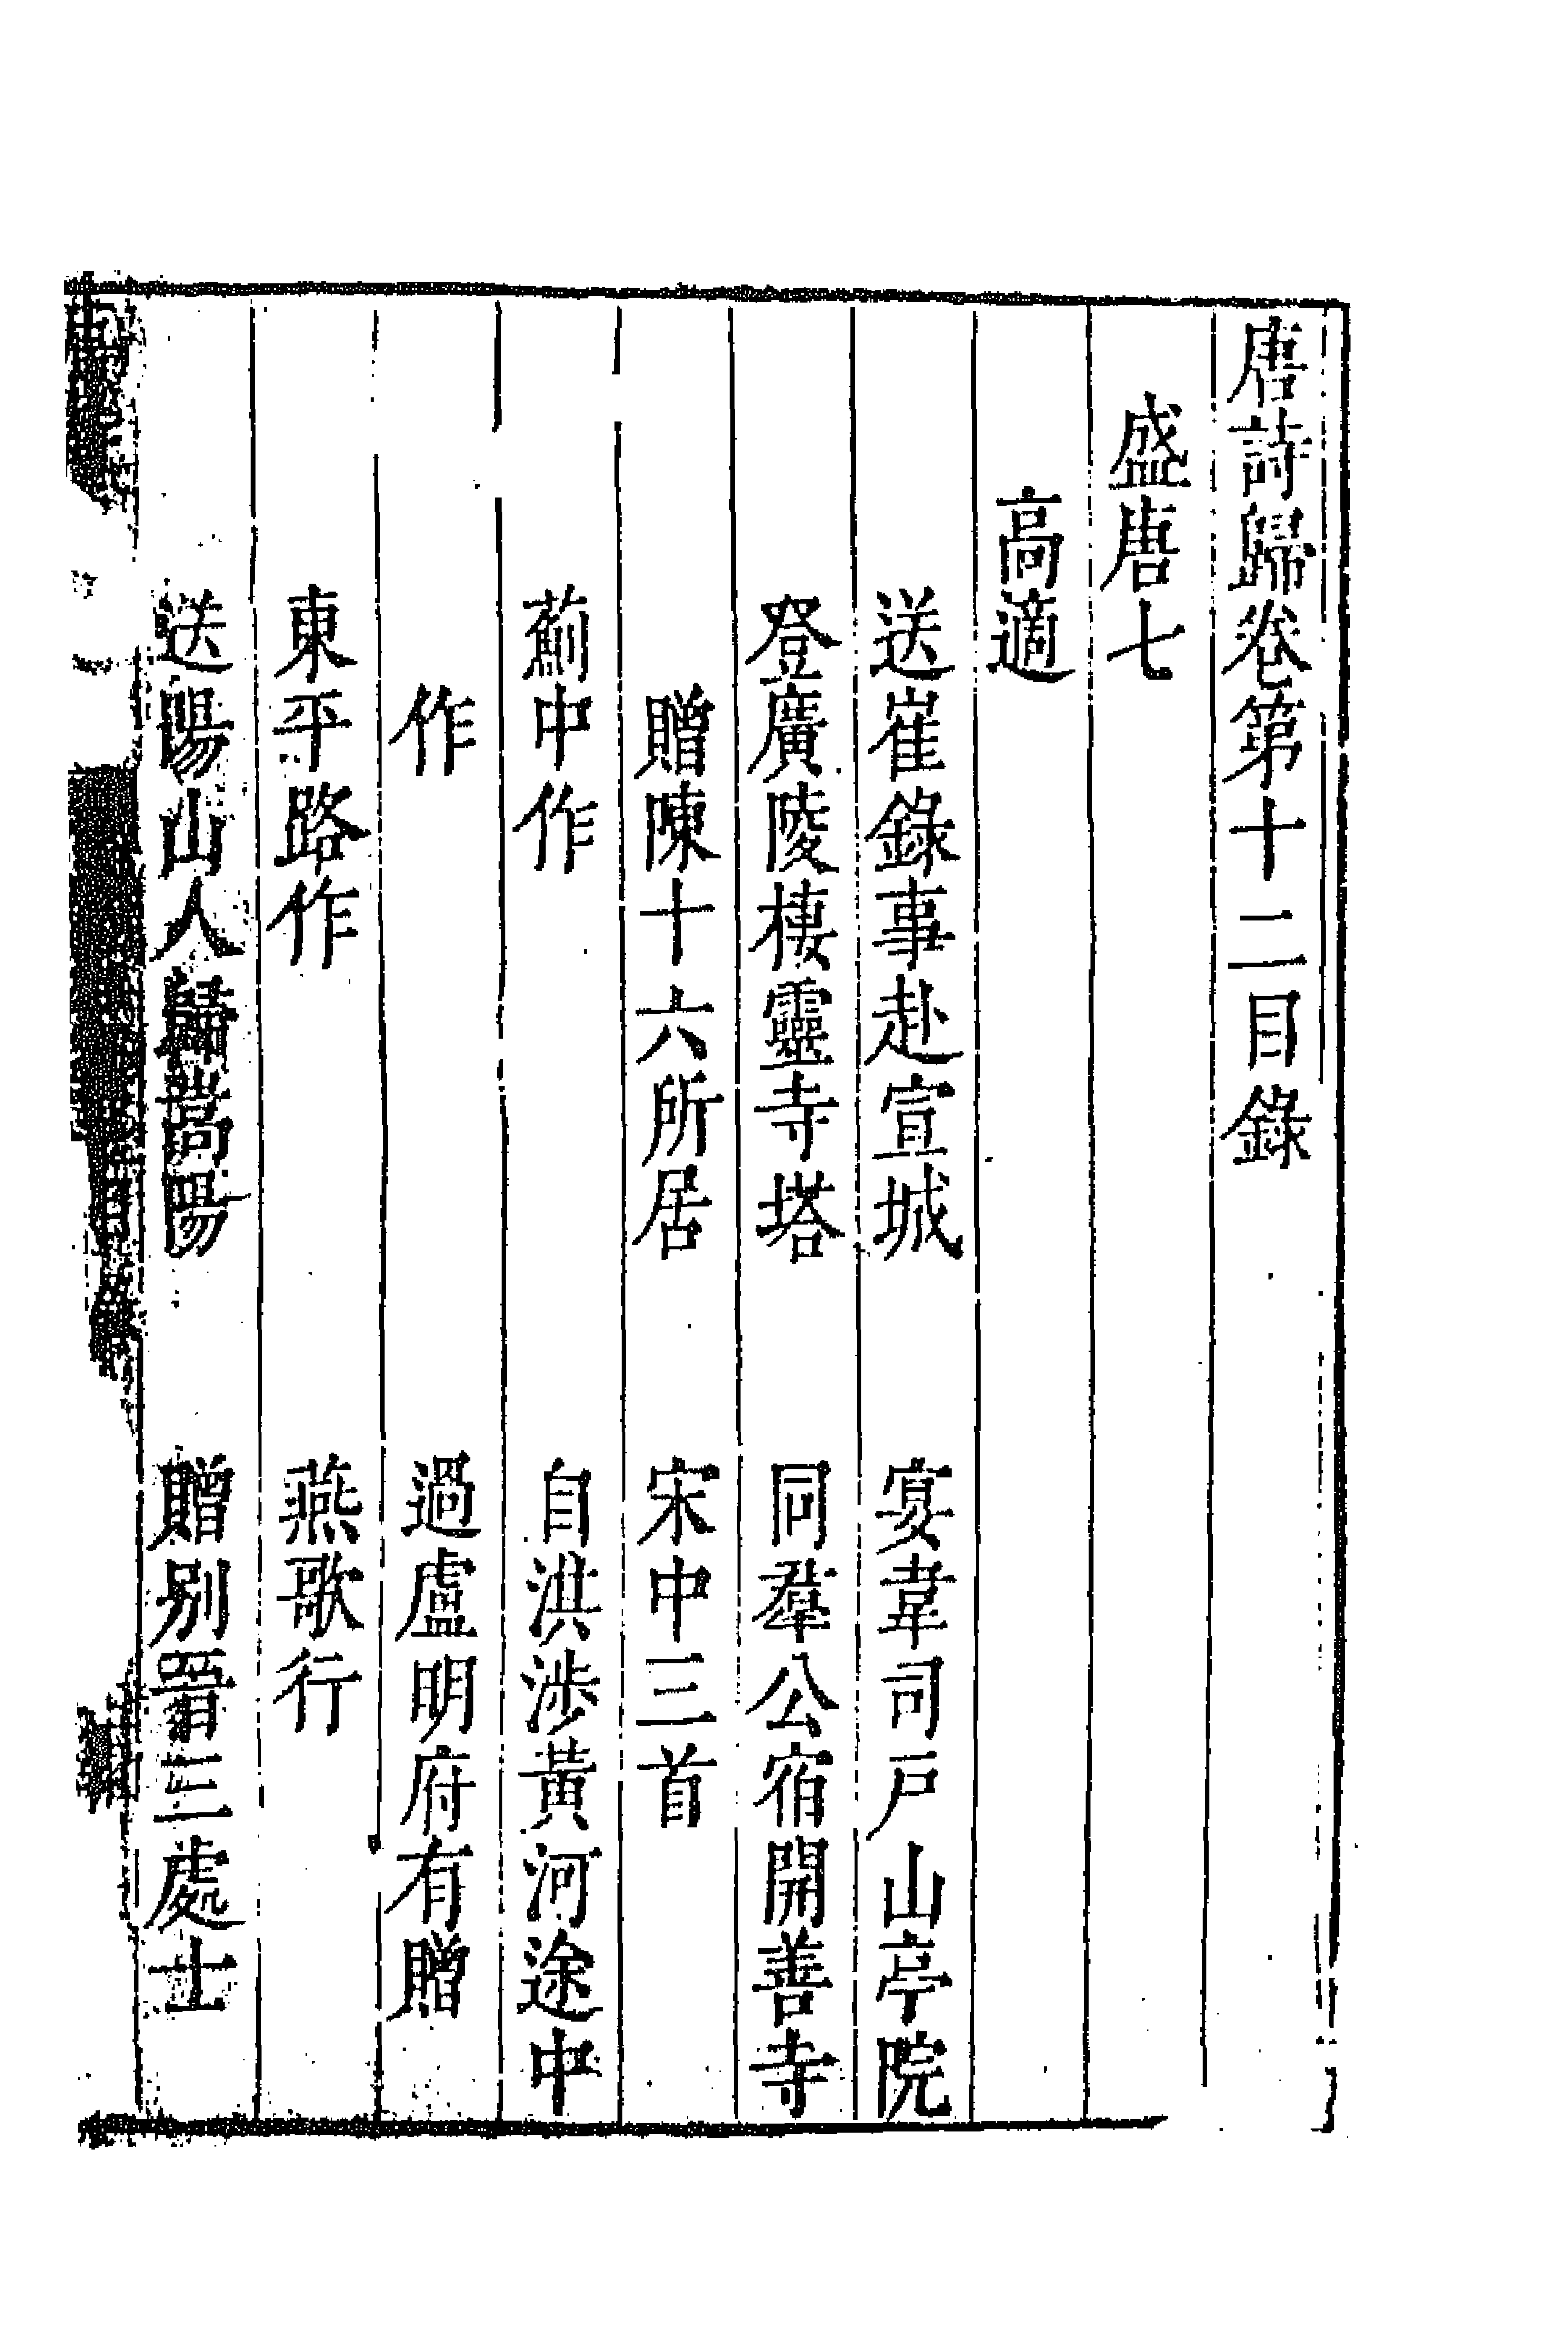 唐詩歸卷第十二目錄
盛唐七
高適
送崔錄事赴宣城　宴韋司戶山亭院
登廣陵棲靈寺塔　同羣公宿開善寺
贈陳十六所居　宋中三首
薊中作　自淇涉黃河途中
作　過盧明府有贈
東平路作　燕歌行
送陽山人歸嵩陽　贈別晉三處士